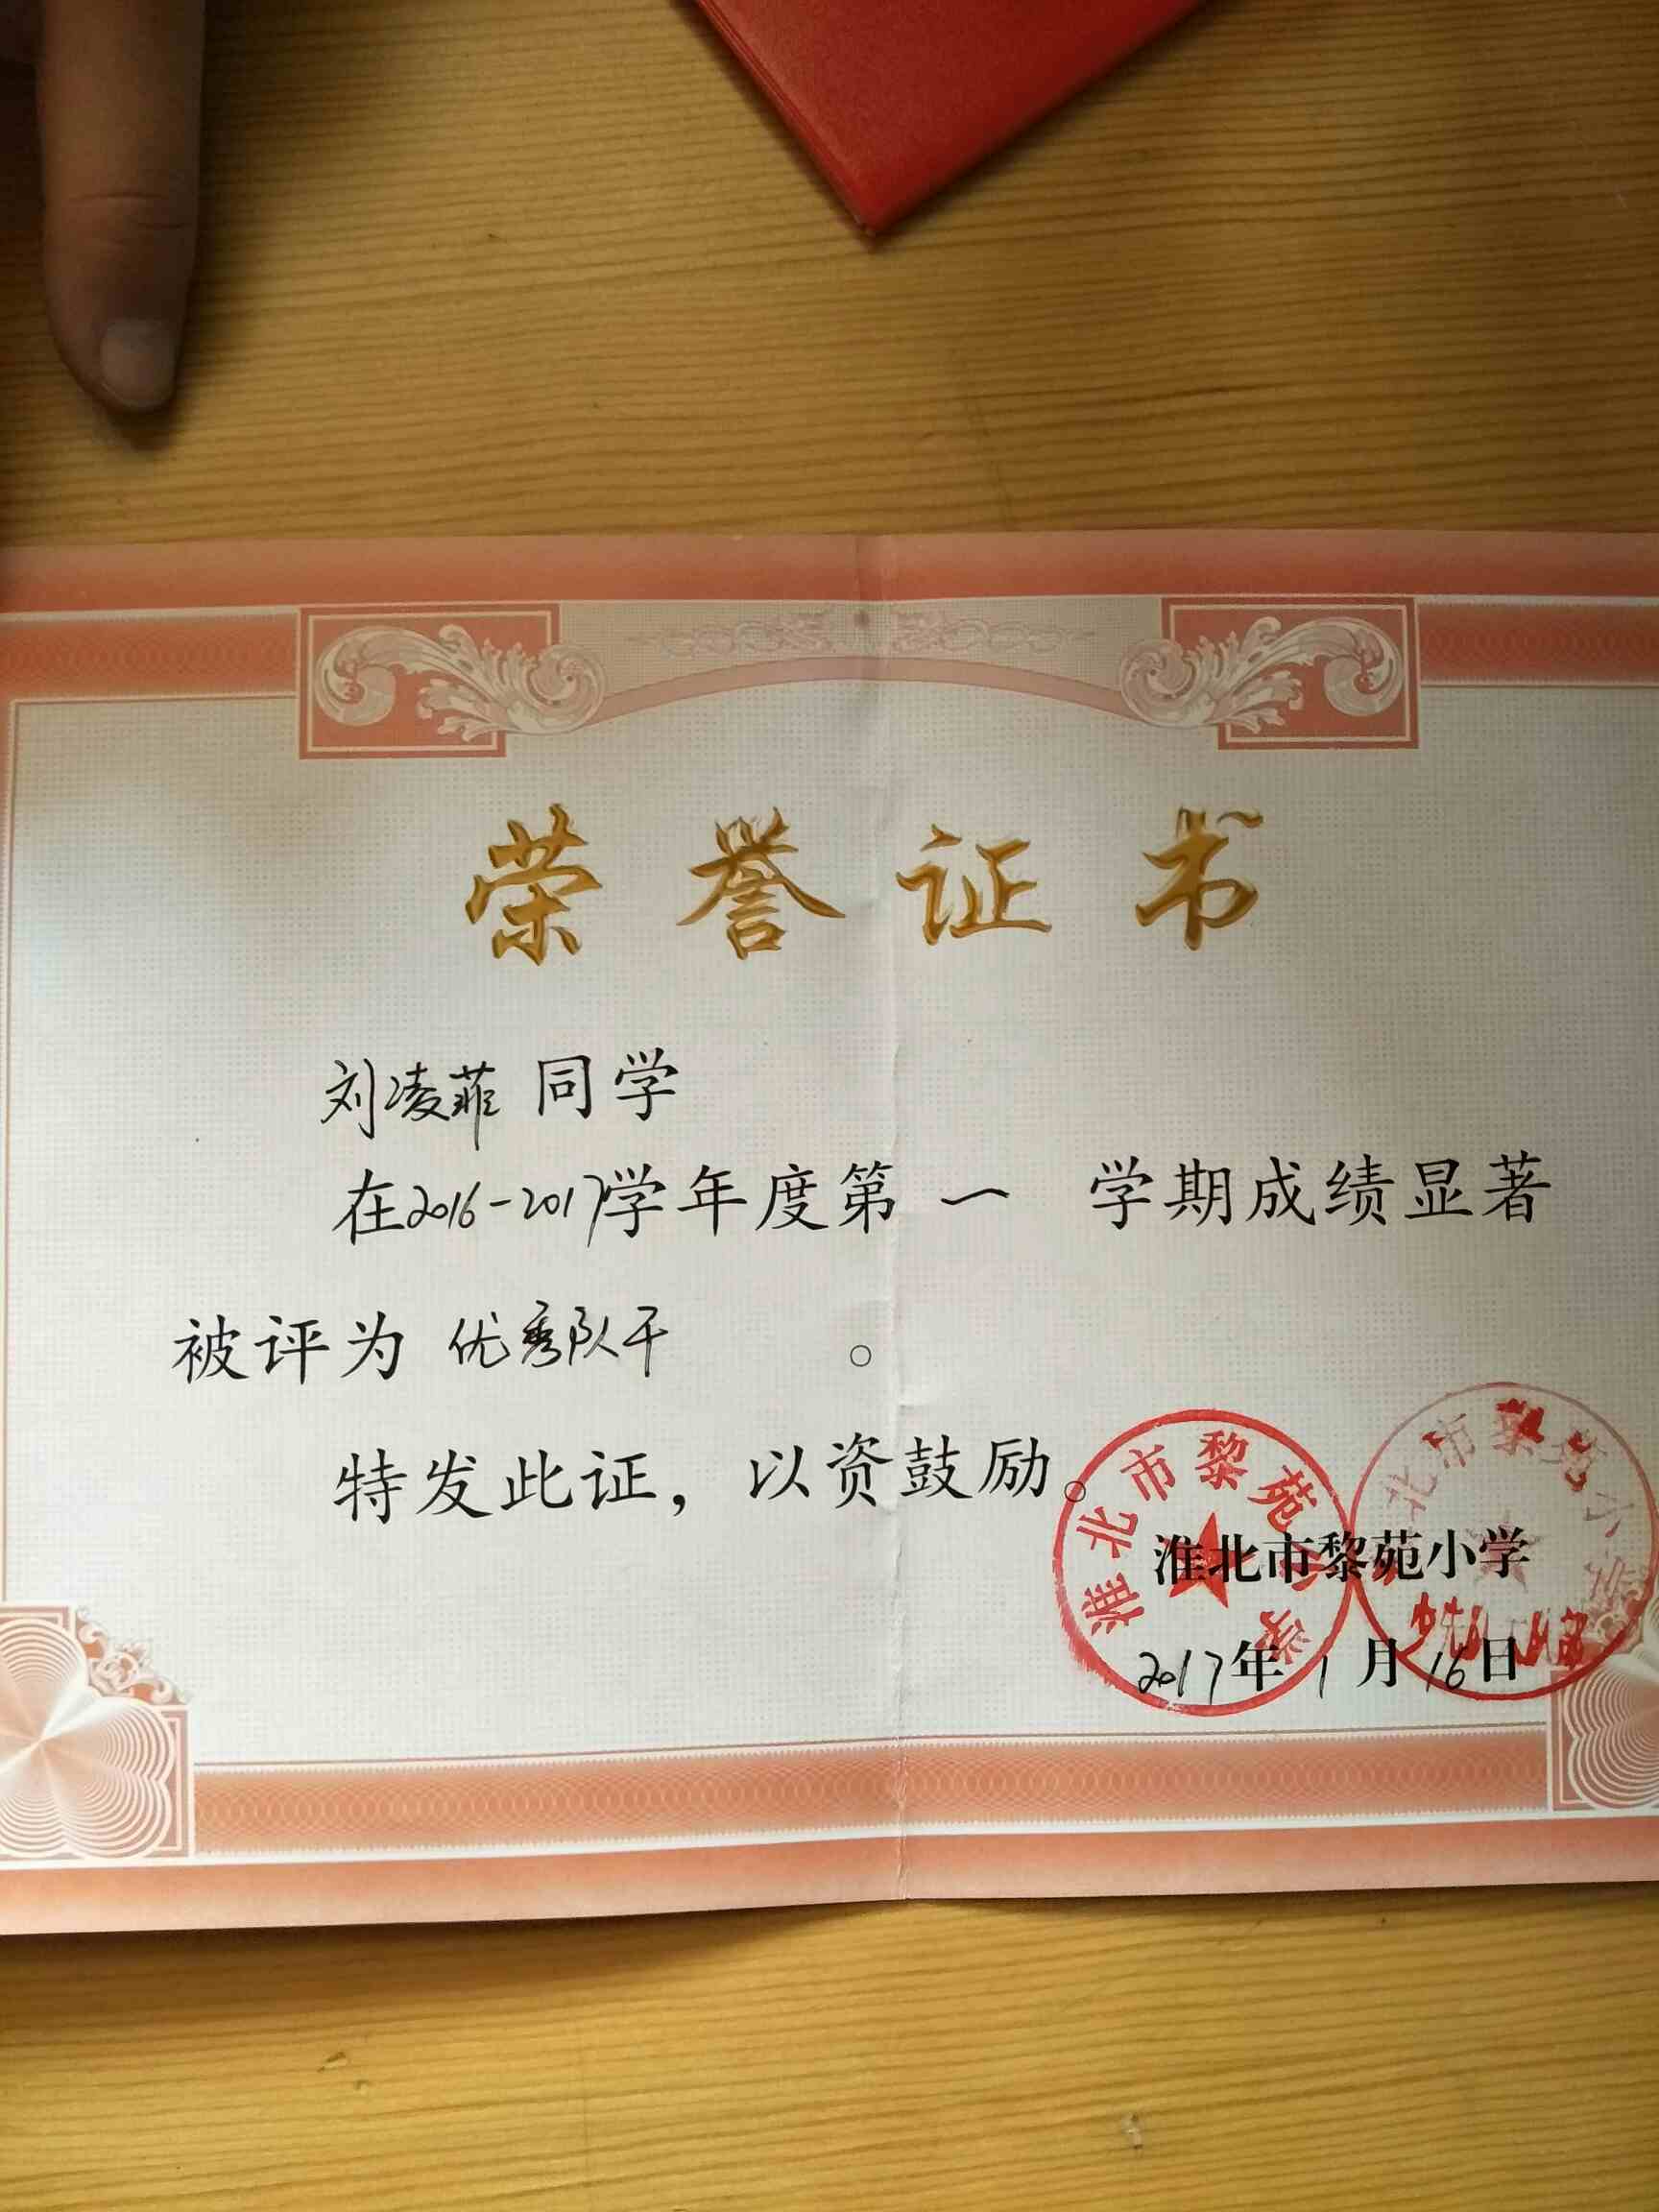 荣誉证书
刘凌菲 同学
在2016-2017学年度第 一 学期成绩显著
被评为 优秀队干 。
特发此证，以资鼓励。
淮北市黎苑小学
淮北市黎苑小学
2017年1月16日
北市黎苑小学
少先队大队部